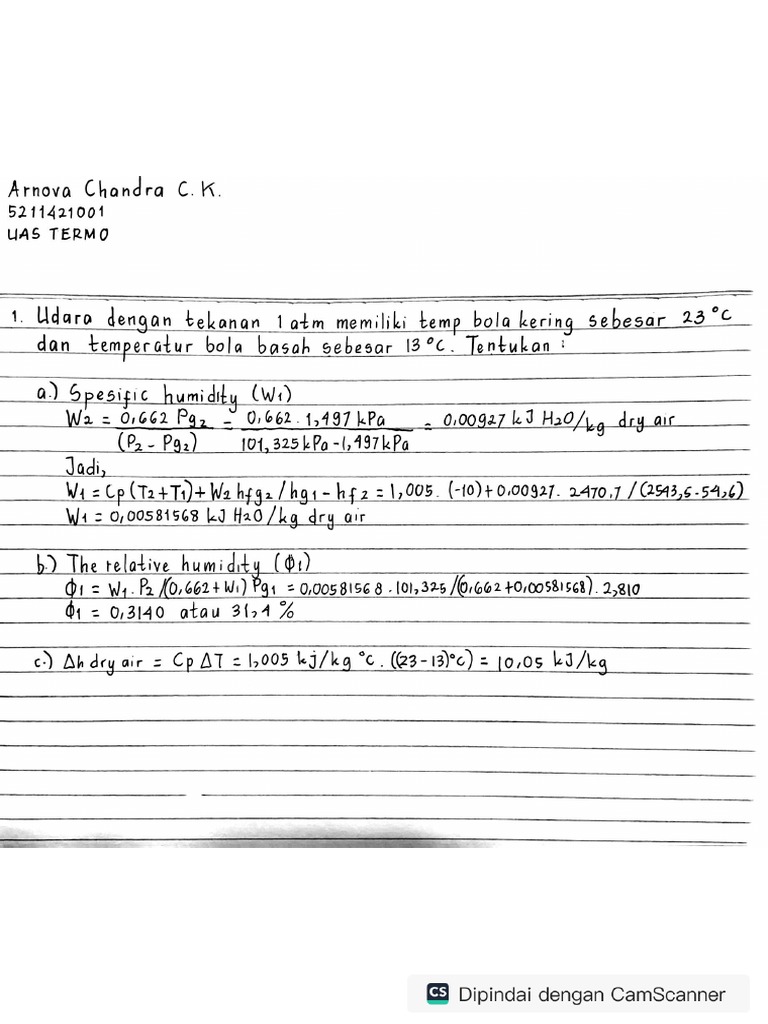 Arnova Chandra C. K.
5211421001
UAS TERMO
1. Udara dengan tekanan 1 atm memiliki temp bola kering sebesar 23 °C
dan temperatur bola basah sebesar 13 °C. Tentukan :
a.) Spesific humidity (W1)
W2 = 0,662 Pg2 = 0,662 . 1,497 kPa = 0,00927 kJ H2O/kg dry air
(P2 - Pg2) 101,325 kPa - 1,497 kPa
Jadi,
W1 = Cp (T2 + T1) + W2 hfg2 / hg1 - hf2 = 1,005. (-10) + 0,00927. 2470,7 / (2543,5 - 54,6)
W1 = 0,00581568 kJ H2O/kg dry air
b.) The relative humidity (Φ1)
Φ1 = W1 . P2 /(0,662 + W1) Pg1 = 0,00581568 . 101,325 /(0,662 + 0,00581568). 2,810
Φ1 = 0,3140 atau 31,4 %
c.) Δh dry air = Cp ΔT = 1,005 kj/kg °C . ((23 - 13)°C) = 10,05 kJ/kg
CS Dipindai dengan CamScanner